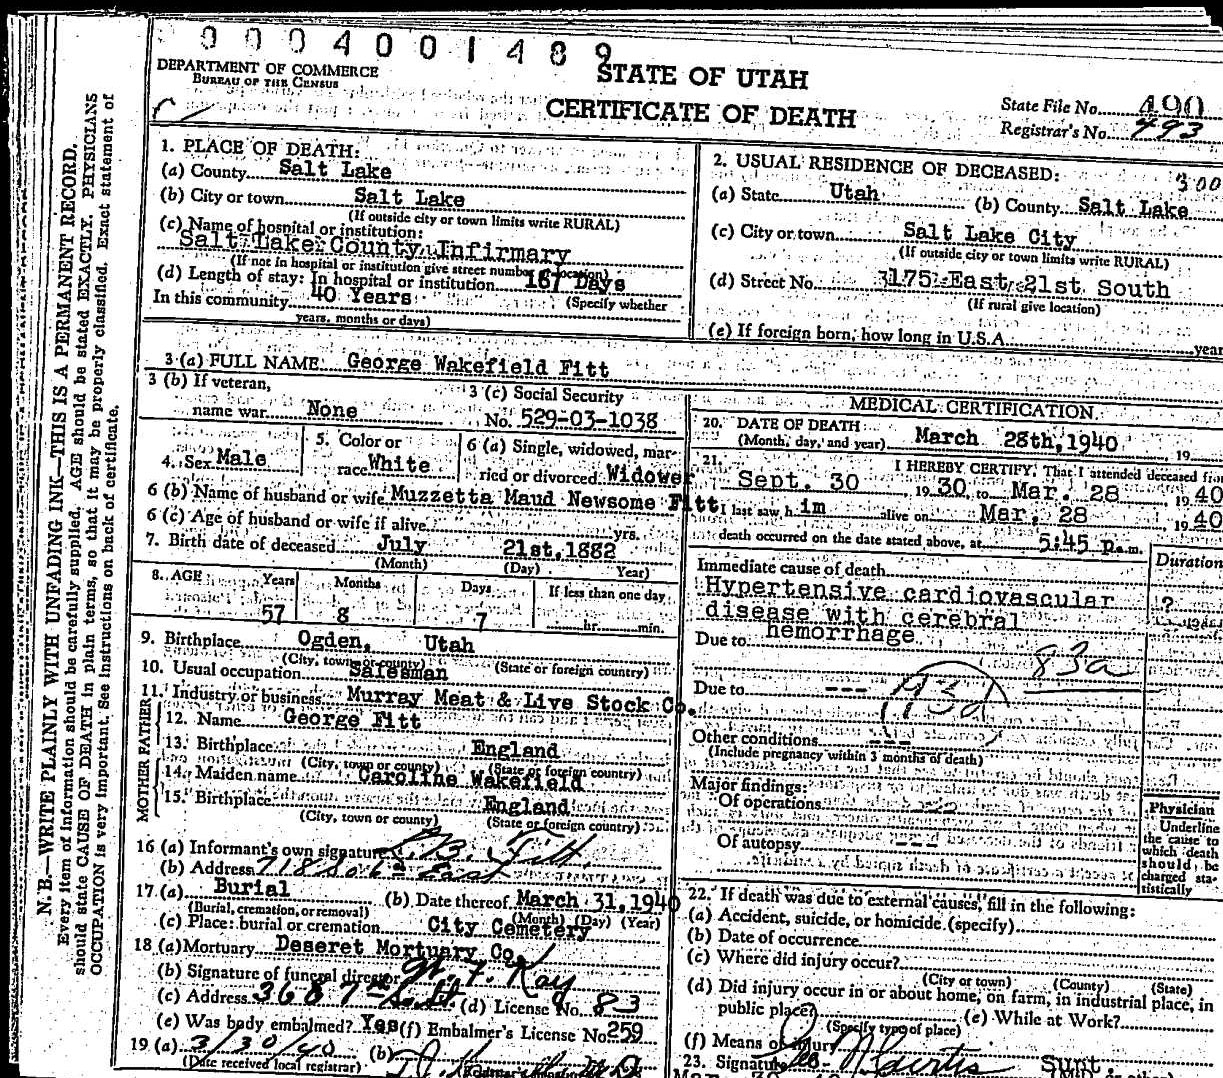 0004001489
DEPARTMENT OF COMMERCE
BUREAU OF THE CENSUS
STATE OF UTAH
CERTIFICATE OF DEATH
State File No. 490
Registrar's No. 493
N. B.—WRITE PLAINLY WITH UNFADING INK—THIS IS A PERMANENT RECORD.
Every item of information should be carefully supplied. AGE should be stated EXACTLY. PHYSICIANS
should state CAUSE OF DEATH in plain terms, so that it may be properly classified. Exact statement of
OCCUPATION is very important. See instructions on back of certificate.
1. PLACE OF DEATH:
(a) County Salt Lake
(b) City or town Salt Lake
(If outside city or town limits write RURAL)
(c) Name of hospital or institution:
Salt Lake County Infirmary
(If not in hospital or institution give street number or location)
(d) Length of stay: In hospital or institution 167 Days
In this community 40 Years (Specify whether
years, months or days)
2. USUAL RESIDENCE OF DECEASED: 300
(a) State Utah (b) County Salt Lake
(c) City or town Salt Lake City
(If outside city or town limits write RURAL)
(d) Street No. 3175 East 21st South
(If rural give location)
(e) If foreign born, how long in U.S.A. year
3 (a) FULL NAME George Wakefield Fitt
3 (b) If veteran,
name war None
3 (c) Social Security
No. 529-03-1038
4. Sex Male
5. Color or
race White
6 (a) Single, widowed, mar-
ried or divorced Widower
6 (b) Name of husband or wife Muzzetta Maud Newsome Fitt
6 (c) Age of husband or wife if alive yrs.
7. Birth date of deceased July 21st, 1882
(Month) (Day) Year)
8. AGE Years Months Days If less than one day
57 8 7 hr. min.
9. Birthplace Ogden, Utah
(City, town or county) (State or foreign country)
10. Usual occupation Salesman
11. Industry or business Murray Meat & Live Stock Co.
FATHER
12. Name George Fitt
13. Birthplace England
(City, town or county) (State or foreign country)
MOTHER
14. Maiden name Caroline Wakefield
15. Birthplace England
(City, town or county) (State or foreign country)
16 (a) Informant's own signature Fitt
(b) Address 718 So 6th East
17. (a) Burial (b) Date thereof March 31, 1940
(Burial, cremation, or removal) (Month) (Day) (Year)
(c) Place: burial or cremation City Cemetery
18 (a) Mortuary Deseret Mortuary Co.
(b) Signature of funeral director Kay
(c) Address 36 E 7th So. St (d) License No. 83
(e) Was body embalmed? Yes (f) Embalmer's License No. 259
19 (a) 3/30/40 (b)
(Date received local registrar)
MEDICAL CERTIFICATION
20. DATE OF DEATH
(Month, day, and year) March 28th, 1940 19
21. I HEREBY CERTIFY, That I attended deceased from
Sept. 30 1930 to Mar. 28 1940
I last saw him alive on Mar. 28 1940
death occurred on the date stated above, at 5:45 p.m.
Immediate cause of death Duration
Hypertensive cardiovascular ?
disease with cerebral
hemorrhage
Due to 83a
Due to --- 93d
Other conditions ---
(Include pregnancy within 3 months of death)
Major findings:
Of operations ---
Of autopsy ---
Physician
Underline
the cause to
which death
should be
charged sta-
tistically
22. If death was due to external causes, fill in the following:
(a) Accident, suicide, or homicide (specify)
(b) Date of occurrence
(c) Where did injury occur?
(City or town) (County) (State)
(d) Did injury occur in or about home, on farm, in industrial place, in
public place? (e) While at Work?
(Specify type of place)
(f) Means of injury
23. Signature Supt